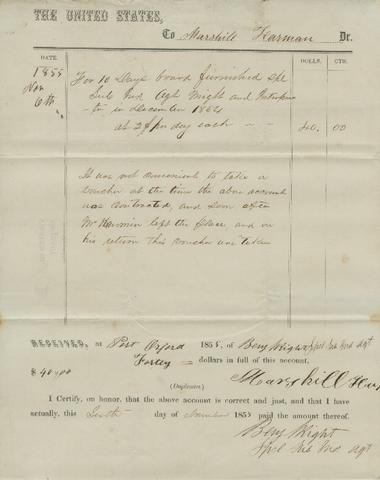 THE UNITED STATES,
To Marshill Harman Dr.
DATE. DOLLS. CTS.
1855 For 10 Days board furnished Spl
Nov Sub Ind Agt Wright and Interpre
6th ter in December 1854
at 2$ per day each - - 40. 00
It was not convenient to take a
voucher at the time the above account
was contracted, and soon after
Mr Harman left the place and on
his return this voucher was taken
RECEIVED, at Port Orford 1855, of Benj Wright Spcl Sub Ind Agt
Fortey dollars in full of this account.
$ 40.00
Marshill Har
(Duplicates)
I Certify, on honor, that the above account is correct and just, and that I have
actually, this Sixth day of November 1855 paid the amount thereof.
Benj Wright
Spcl Sub Ind Agt